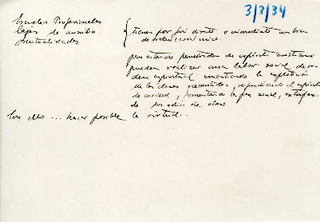 3/3/34
Escuelas Profesionales
Cajas de auxilio
Mutualidades
{ tienen por fin directo e inmediato un bien
de orden económico
pero estando penetradas de espíritu cristiano
pueden realizar una labor social de orden
espiritual evitando la explotación
de las clases necesitadas, difundiendo el espíritu
de caridad, fomentando la paz social,
los odios de clase
Con ello ... hacer posible la virtud ..